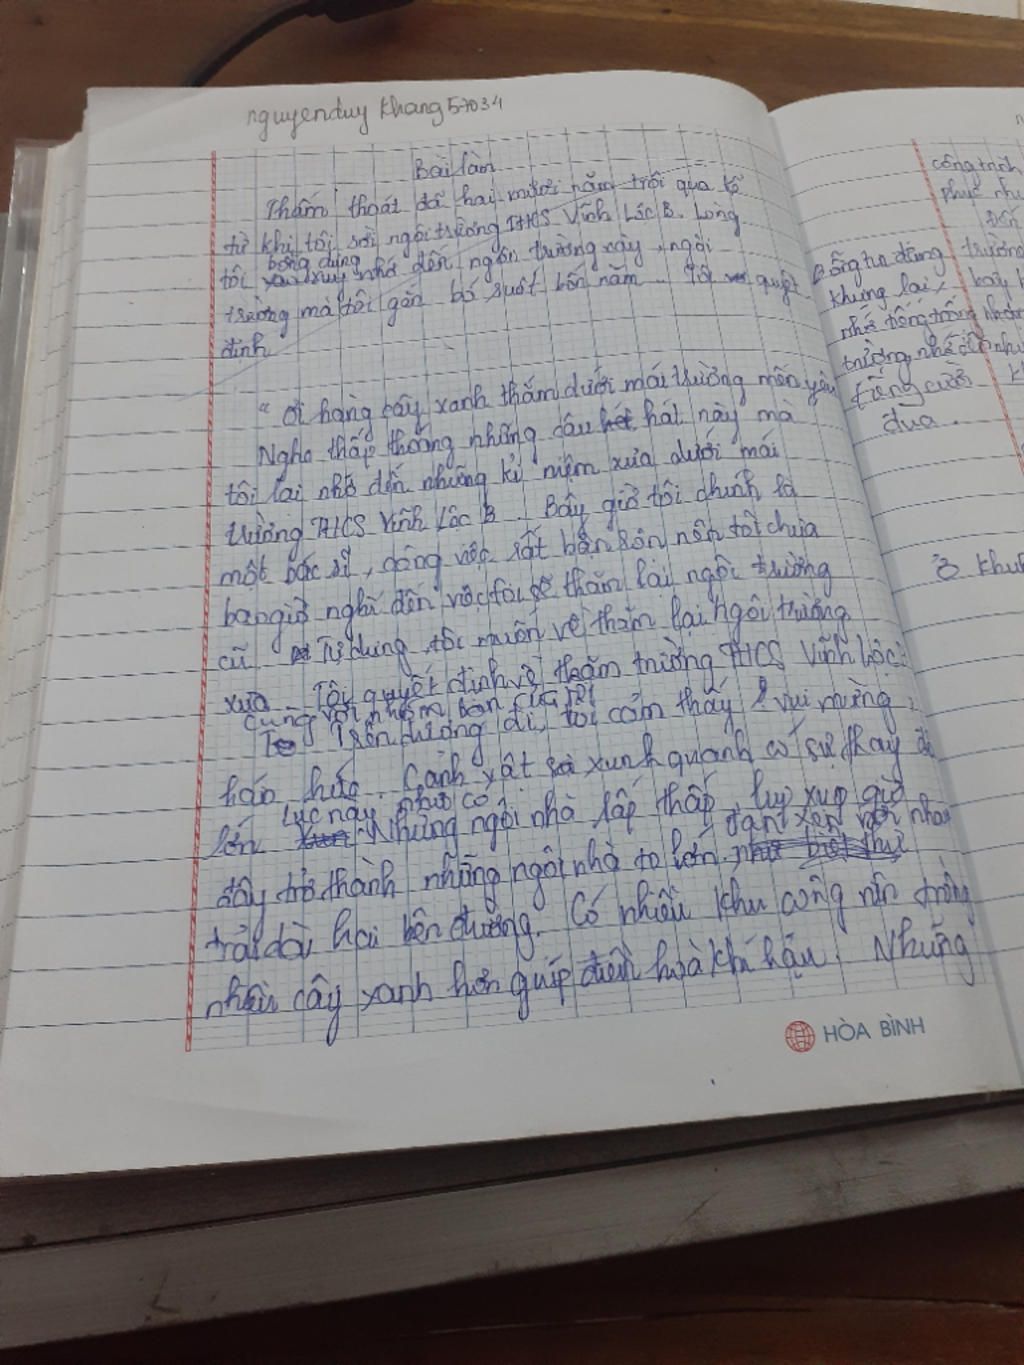 nguyenduy khang 57034
Bài làm
Thấm thoát đã hai mươi năm trôi qua kể
từ khi tôi rời ngôi trường THCS Vĩnh Lộc B. Lòng
bỗng dưng
tôi nhớ đến ngôn trường này, ngôi
trường mà tôi gắn bó suốt bốn năm. Tôi quyết
định
"Ơi hàng cây xanh thắm dưới mái trường mến yêu
Nghe thấp thoáng những câu hát này mà
tôi lại nhớ đến những kỉ niệm xưa dưới mái
trường THCS Vĩnh Lộc B. Bây giờ tôi chính là
một bác sĩ, công việc rất bận rộn nên tôi chưa
bao giờ nghĩ đến việc tôi sẽ thăm lại ngôi trường
cũ. Tự dưng tôi muốn về thăm lại ngôi trường
xưa. Tôi quyết định về thăm trường THCS Vĩnh Lộc
cùng với nhóm bạn của tôi
Trên đường đi, tôi cảm thấy vui mừng,
háo hức. Cảnh vật xunh quanh có sự thay đổi
lúc này như có
lớn. Những ngôi nhà lấp thấp, lụp xụp giờ
đan xen với nhau
đây trở thành những ngôi nhà to lớn.
trải dài hai bên đường. Có nhiều khu công nên trồng
nhiều cây xanh hơn giúp điều hoà khí hậu. Những
HÒA BÌNH
công trình
phúc
Đến
Bỗng tư dừng
trường
khưng lại,
nhớ tiếng trống
trường, nhớ
tiếng cười
đùa.
Ở khu